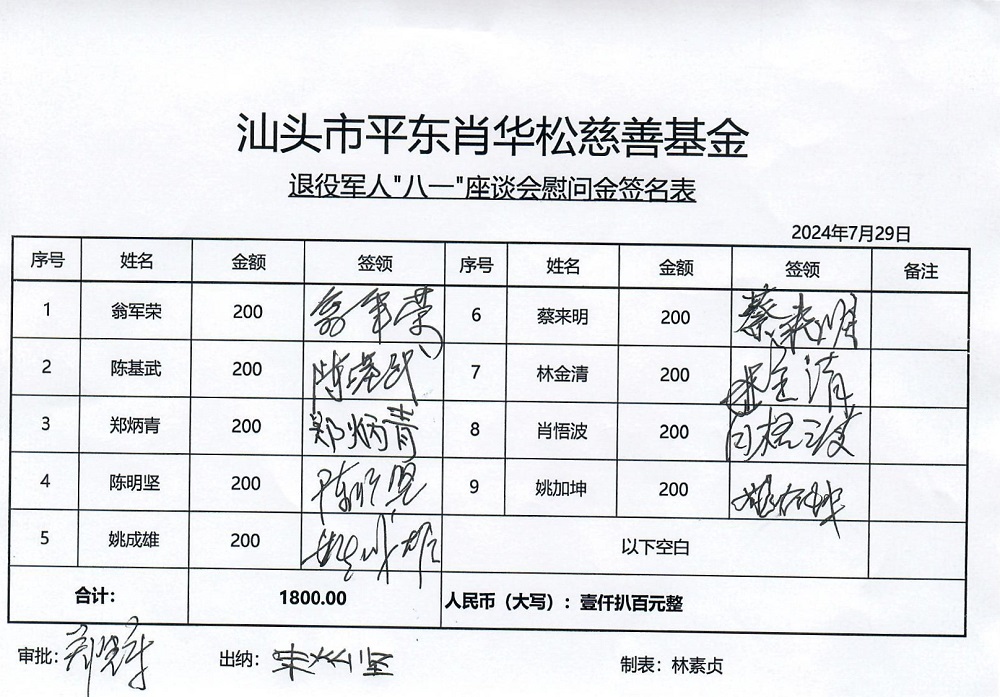 汕头市平东肖华松慈善基金
退役军人"八一"座谈会慰问金签名表
2024年7月29日
序号 姓名 金额 签领 序号 姓名 金额 签领 备注
1 翁军荣 200 翁军荣 6 蔡来明 200 蔡来明
2 陈基武 200 陈基武 7 林金清 200 林金清
3 郑炳青 200 郑炳青 8 肖悟波 200 肖悟波
4 陈明坚 200 陈明坚 9 姚加坤 200 姚加坤
5 姚成雄 200 姚成雄 以下空白
合计: 1800.00 人民币（大写）：壹仟扒百元整
审批: 出纳: 制表：林素贞